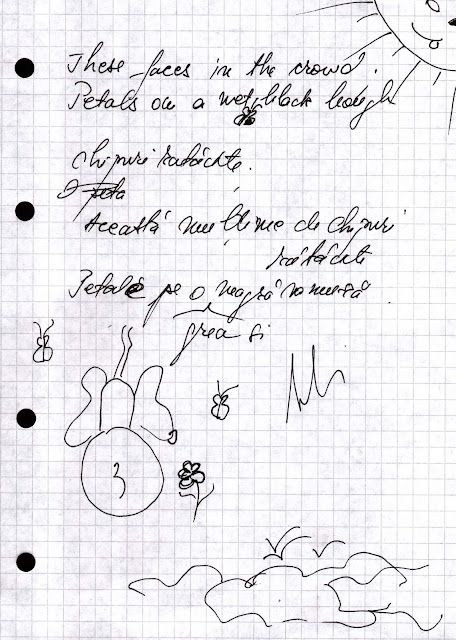 These faces in the crowd.
Petals on a wet, black bough
chipuri rătăcite.
Această mulțime de chipuri
rătăcite
Petale pe o neagră ramură.
grea și
3